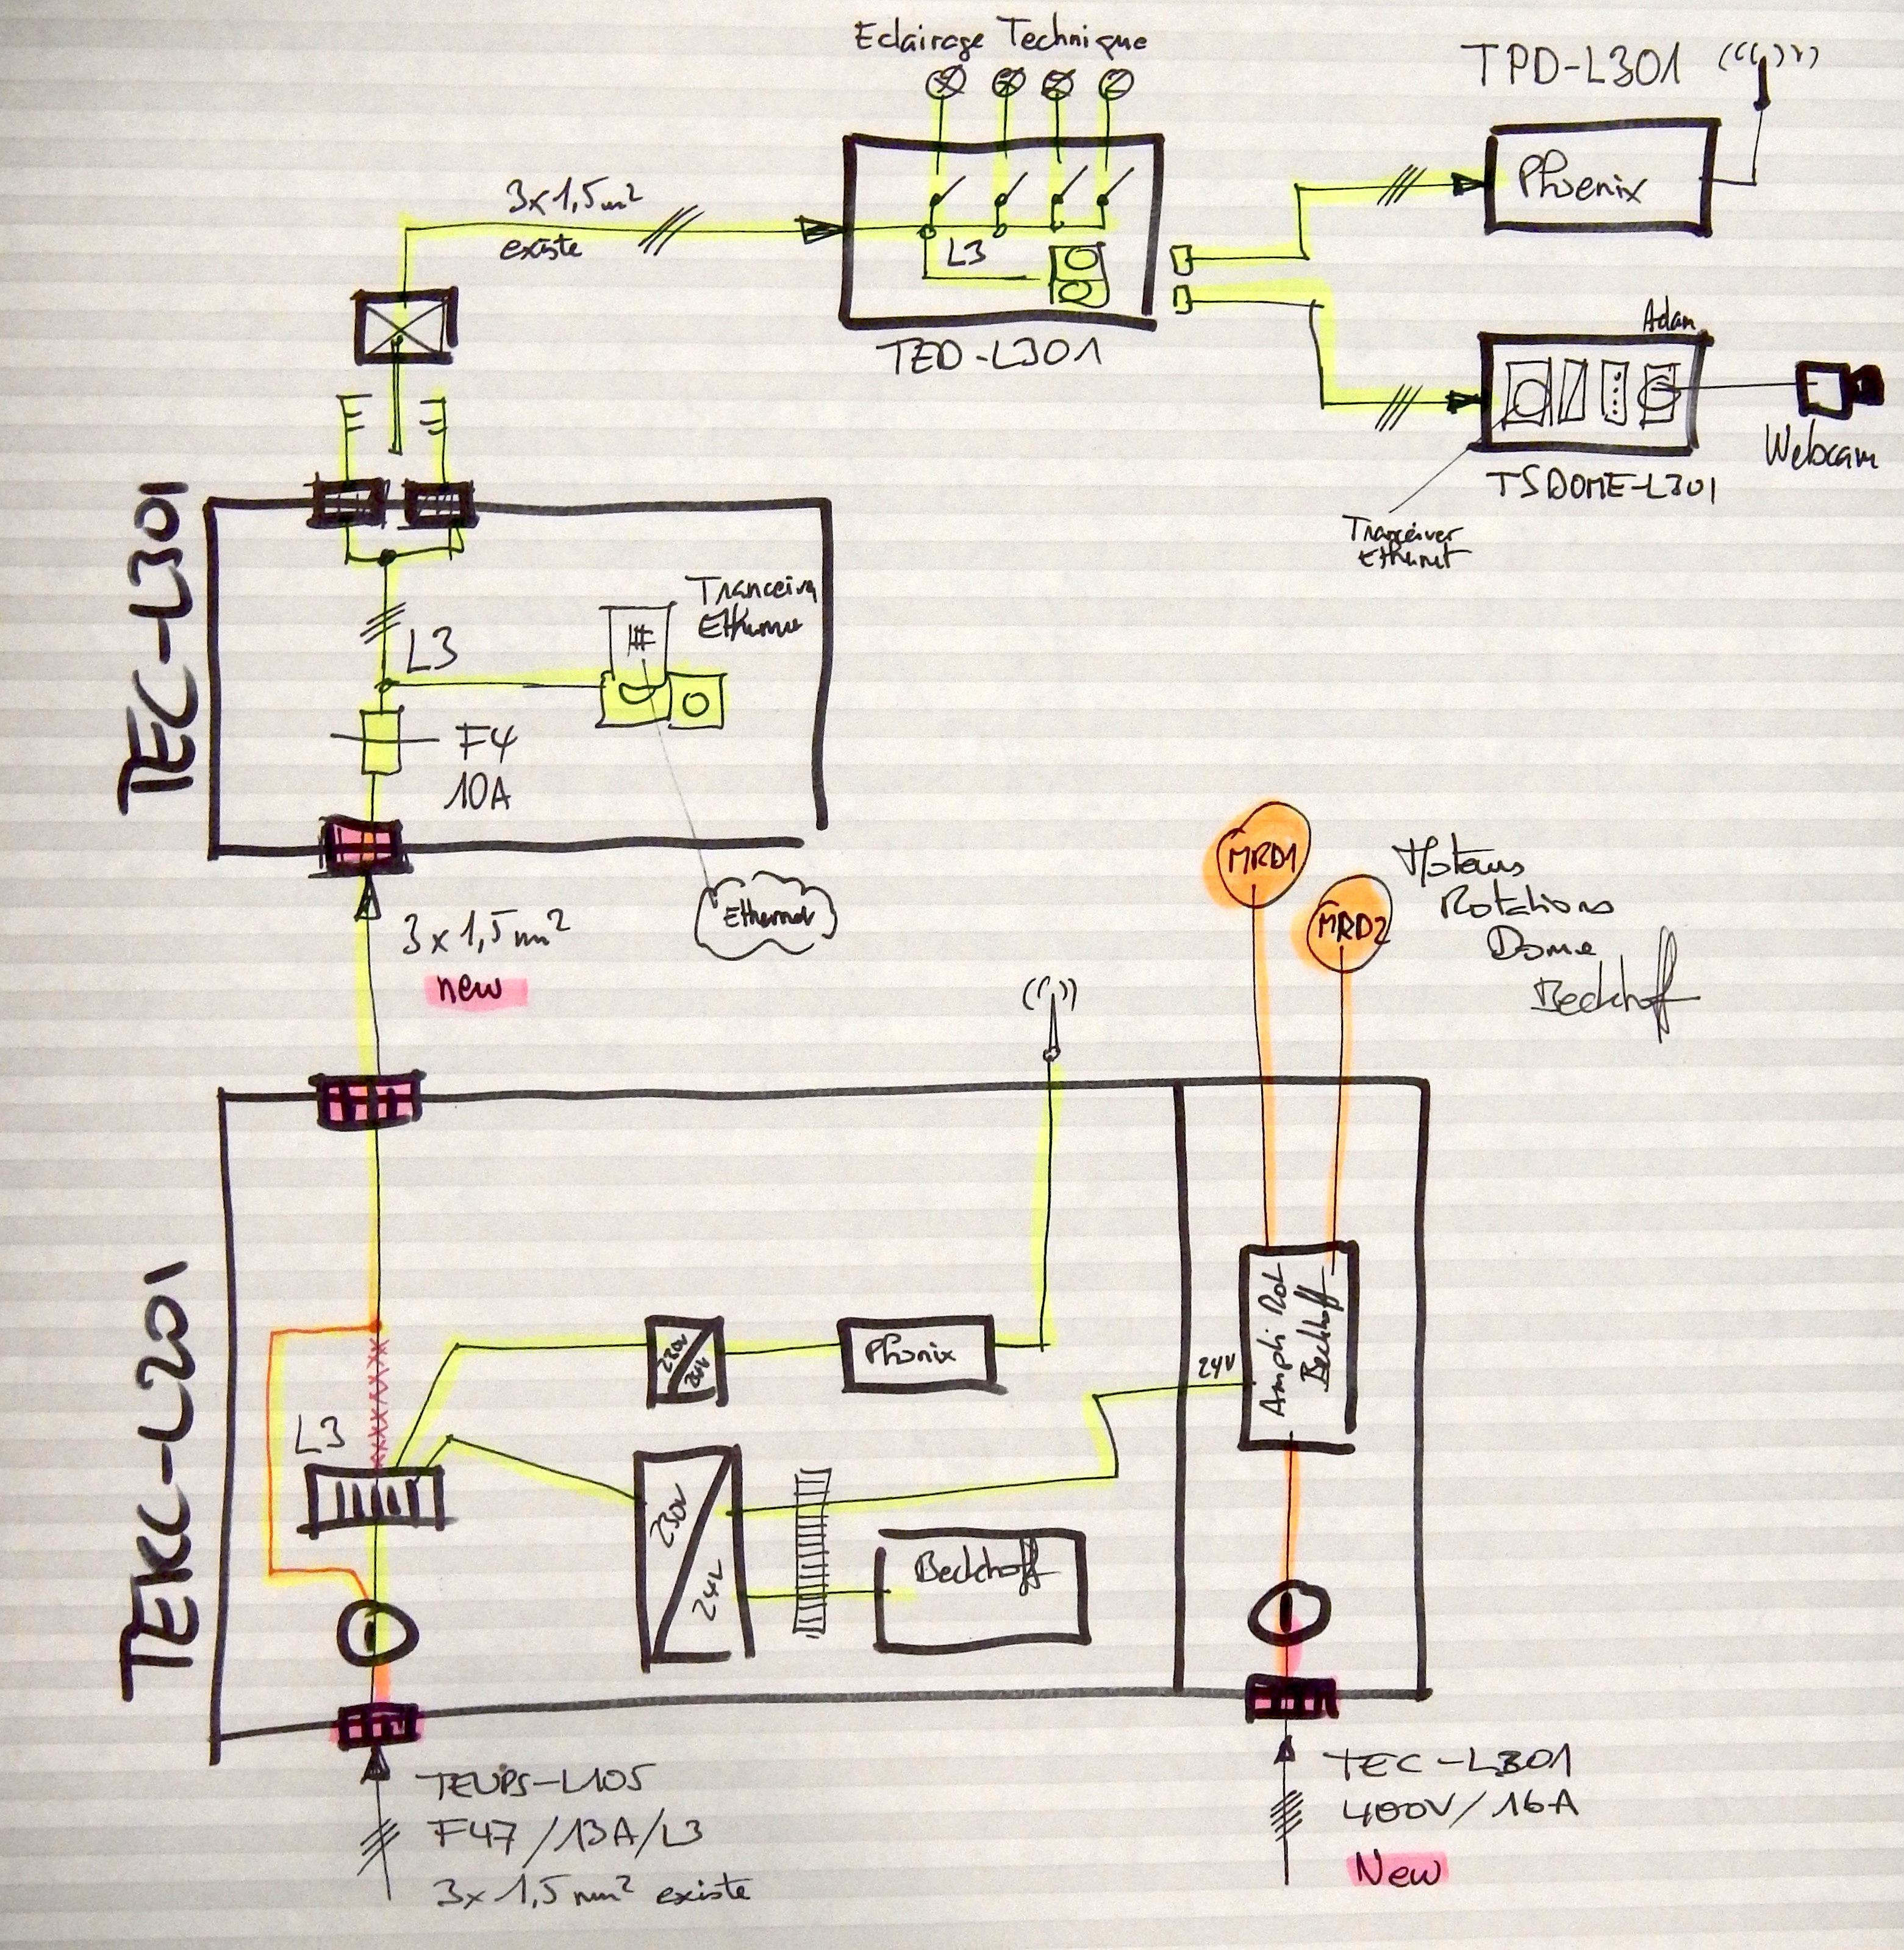 Eclairage Technique
TPD-L301
Phoenix
3x1,5m²
existe
L3
TED-L301
Adam
TSDOME-L301
Webcam
Tranceiver
Ethernet
TEC-L301
Tranceiver
Ethernet
L3
F4
10A
Ethernet
3x1,5m²
new
MRD1
MRD2
Moteurs
Rotations
Dome
Beckhoff
TEKC-L201
L3
230V
24V
Phonix
24V
Ampli Rot
Beckhoff
230V
24V
Beckhoff
TEUPS-L105
F47/13A/L3
3x1,5mm² existe
TEC-L301
400V/16A
New